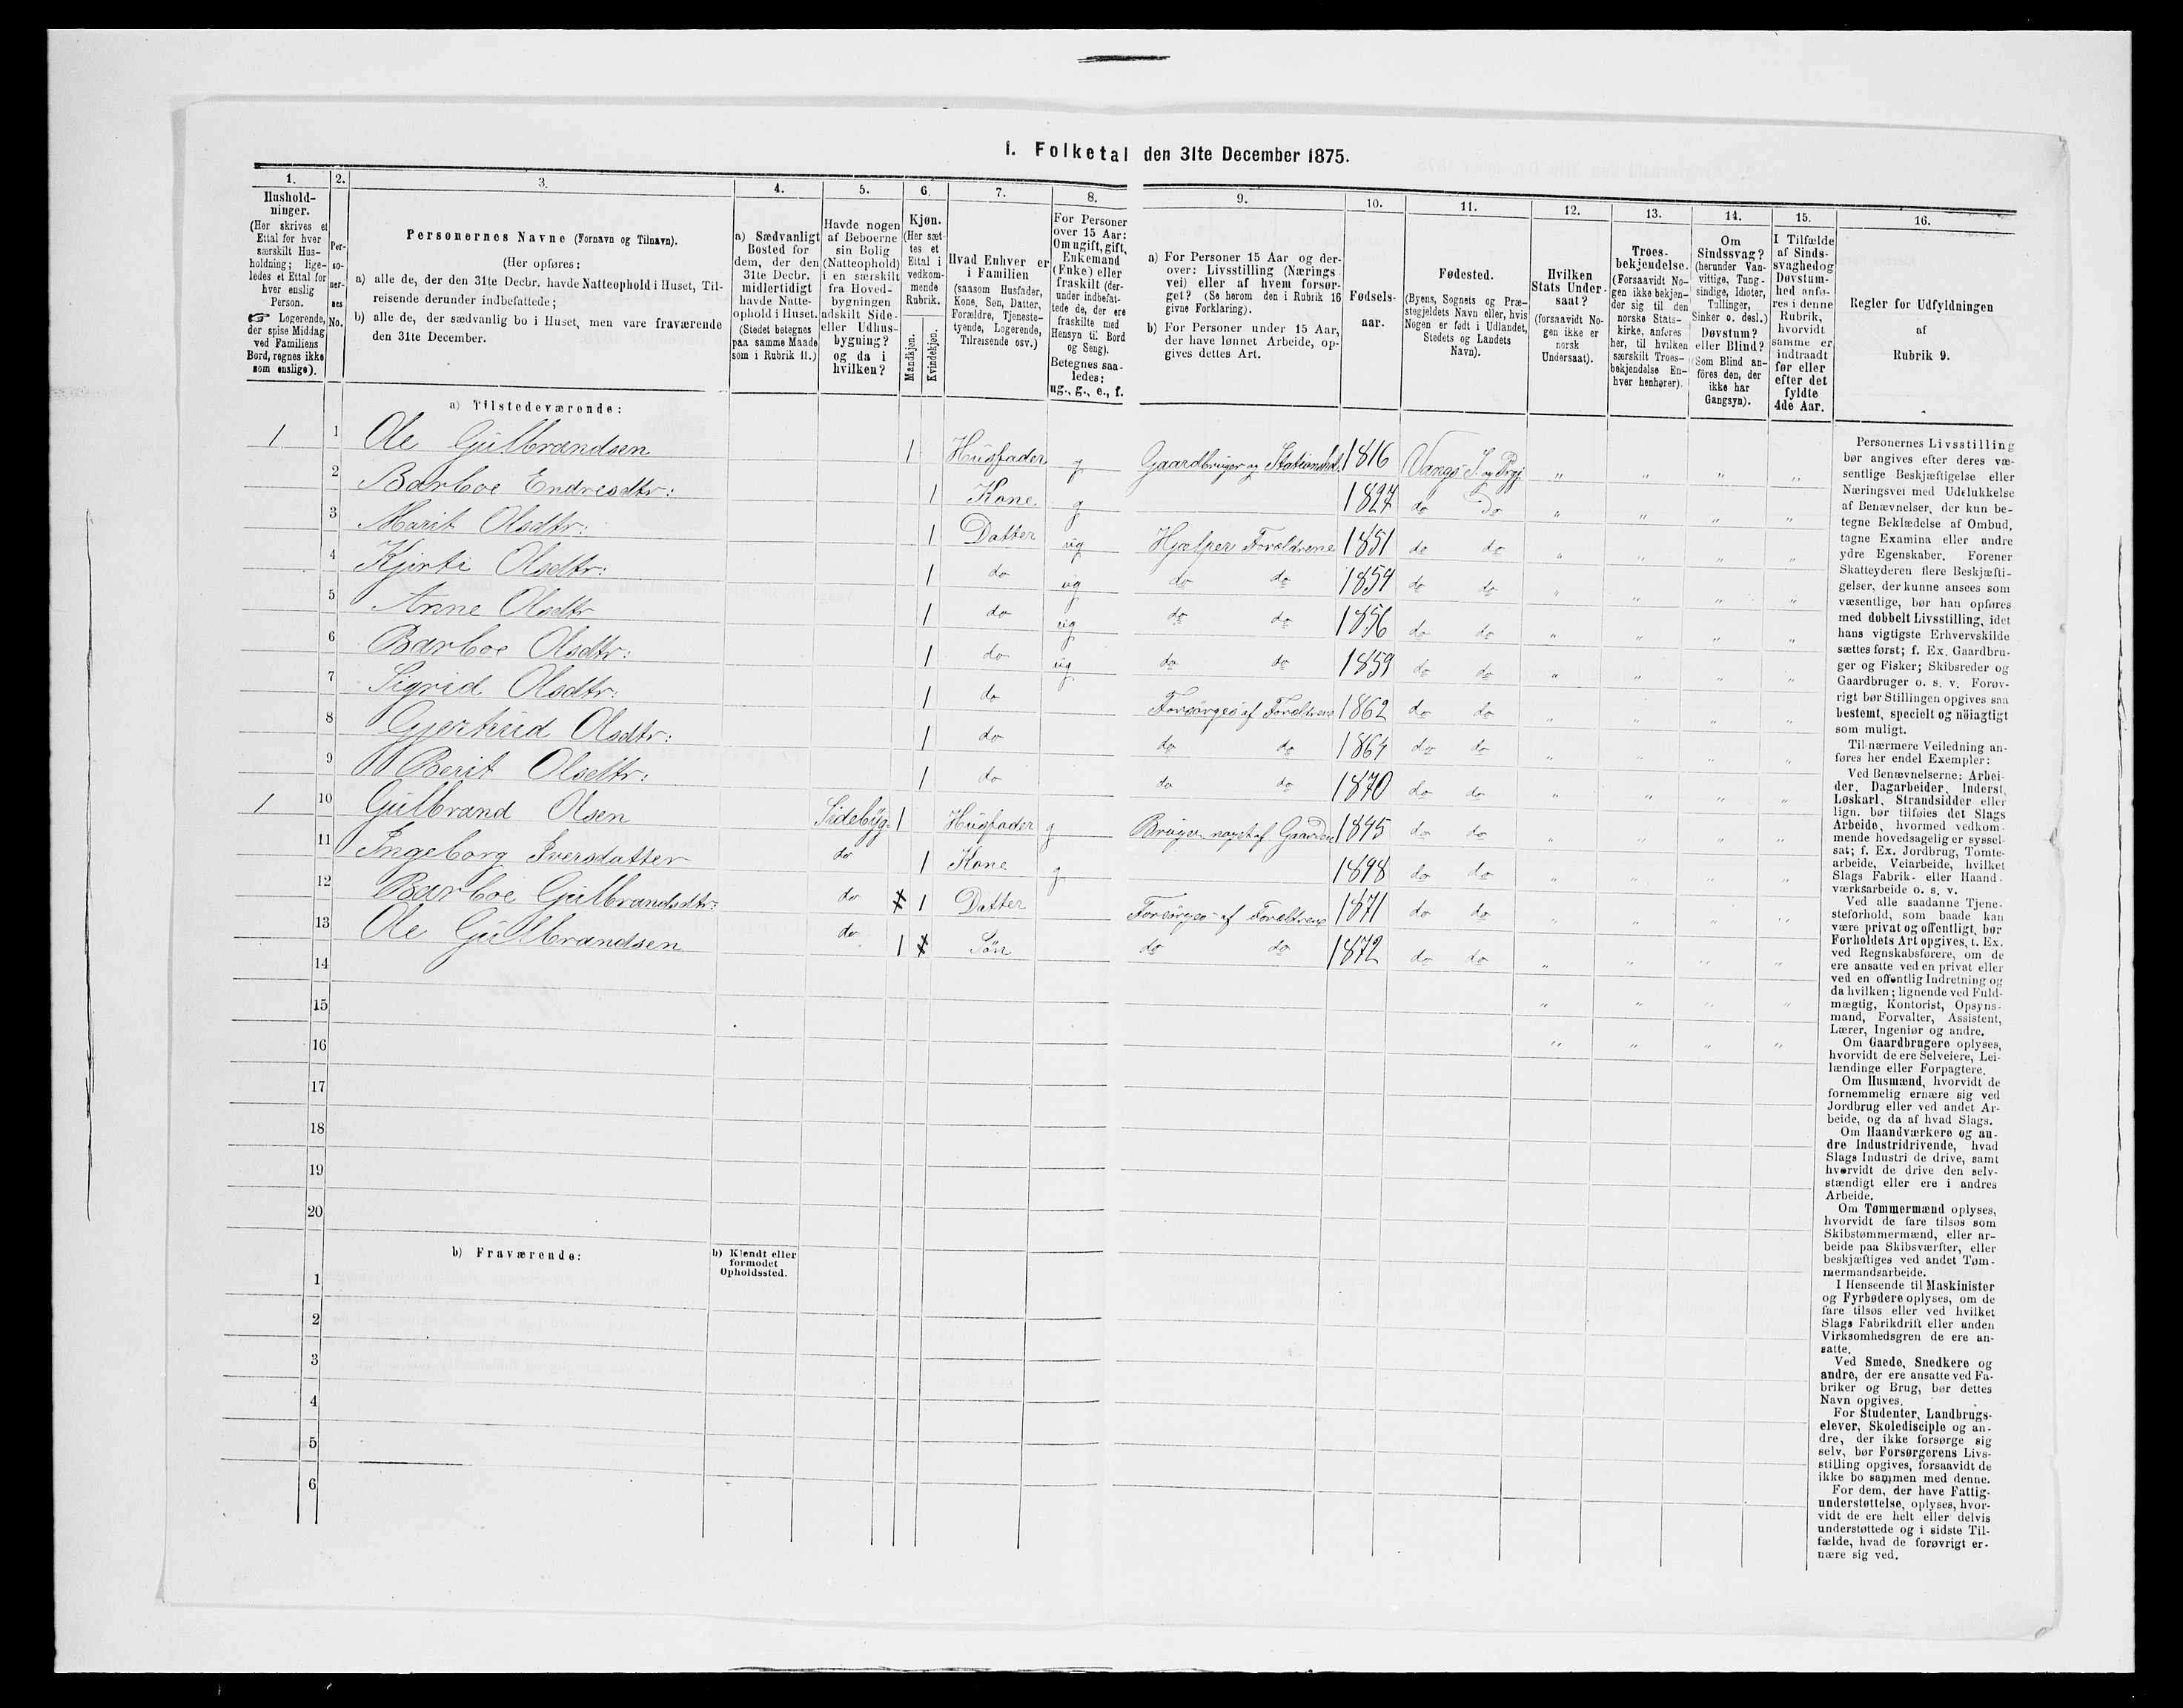 1. Folketal den 31te December 1875.
1. 2. 3. 4. 5. 6. 7. 8. 9. 10. 11. 12. 13. 14. 15. 16.
Hushold-
ninger.
(Her skrives et
Ettal for hver
særskilt Hus-
holdning; lige-
ledes et Ettal for
hver enslig
Person.
☞ Logerende,
der spise Middag
ved Familiens
Bord, regnes ikke
som enslige).
Per-
so-
ner-
nes
No.
Personernes Navne (Fornavn og Tilnavn).
(Her opføres:
a) alle de, der den 31te Decbr. havde Natteophold i Huset, Til-
reisende derunder indbefattede;
b) alle de, der sædvanlig bo i Huset, men vare fraværende
den 31te December.
a) Sædvanligt
Bosted for
dem, der den
31te Decbr.
midlertidigt
havde Natte-
ophold i Huset.
(Stedet betegnes
paa samme Maade
som i Rubrik 11.)
Havde nogen
af Beboerne
sin Bolig
(Natteophold)
i en særskilt
fra Hoved-
bygningen
adskilt Side-
eller Udhus-
bygning?
og da i
hvilken?
Kjøn.
(Her sæt-
tes et
Ettal i
vedkom-
mende
Rubrik.
Mandkjøn.
Kvindekjøn.
Hvad Enhver er
i Familien
(saasom Husfader,
Kone, Søn, Datter,
Forældre, Tjeneste-
tyende, Logerende,
Tilreisende osv.)
For Personer
over 15 Aar:
Om ugift, gift,
Enkemand
(Enke) eller
fraskilt (der-
under indbefat-
tede de, der ere
fraskilte med
Hensyn til Bord
og Seng).
Betegnes saa-
ledes:
ug., g., e., f.
a) For Personer 15 Aar og der-
over: Livsstilling (Nærings-
vei) eller af hvem forsør-
get? (Se herom den i Rubrik 16
givne Forklaring).
b) For Personer under 15 Aar,
der have lønnet Arbeide, op-
gives dettes Art.
Fødsels-
aar.
Fødested.
(Byens, Sognets og Præ-
stegjeldets Navn eller, hvis
Nogen er født i Udlandet,
Stedets og Landets
Navn).
Hvilken
Stats Under-
saat?
(forsaavidt No-
gen ikke er
norsk
Undersaat).
Troes-
bekjendelse.
(Forsaavidt No-
gen ikke bekjen-
der sig til den
norske Stats-
kirke, anføres
her, til hvilken
særskilt Troes-
bekjendelse En-
hver henhører).
Om
Sindssvag?
(herunder Van-
vittige, Tung-
sindige, Idioter,
Tullinger,
Sinker o. desl.)
Døvstum?
eller Blind?
(Som Blind an-
føres den, der
ikke har
Gangsyn).
I Tilfælde
af Sinds-
svaghed og
Døvstum-
hed anfø-
res i denne
Rubrik,
hvorvidt
samme er
indtraadt
før eller
efter det
fyldte
4de Aar.
Regler for Udfyldningen
af
Rubrik 9.
a) Tilstedeværende:
1 1 Ole Gulbrandsen 1 Husfader g Gaardbruger og 1816 Vangs S. og Prgj „ „ „ „
2 Barboe Endresdtr: 1 Kone g 1827 do do „ „ „ „
3 Marit Olsdtr: 1 Datter ug Hjælper Forældrene 1851 do do „ „ „ „
4 Kjirti Olsdtr: 1 do ug do do 1854 do do „ „ „ „
5 Anne Olsdtr 1 do ug do do 1856 do do „ „ „ „
6 Barboe Olsdtr: 1 do ug do do 1859 do do „ „ „ „
7 Sigrid Olsdtr: 1 do Forsørges af Forældrene 1862 do do „ „ „ „
8 Gjertrud Olsdtr: 1 do do do 1864 do do „ „ „ „
9 Berit Olsdtr: 1 do do do 1870 do do „ „ „ „
1 10 Gulbrand Olsen Sidebyg. 1 Husfader g Bruger noget af Gaarden 1845 do do „ „ „ „
11 Ingeborg Iversdatter do 1 Kone g 1848 do do „ „ „ „
12 Barboe Gulbrandsdtr: do 1 Datter Forsørges af Forældrene 1871 do do „ „ „ „
13 Ole Gulbrandsen do 1 Søn do do 1872 do do „ „ „ „
14 „ „ „ „
15 „ „ „ „
16
17
18
19
20
b) Fraværende:
b) Kjendt eller
formodet
Opholdssted.
1
2
3
4
5
6
Personernes Livsstilling
bør angives efter deres væ-
sentlige Beskjæftigelse eller
Næringsvei med Udelukkelse
af Benævnelser, der kun be-
tegne Beklædelse af Ombud,
tagne Examina eller andre
ydre Egenskaber. Forener
Skatteyderen flere Beskjæfti-
gelser, der kunne ansees som
væsentlige, bør han opføres
med dobbelt Livsstilling, idet
hans vigtigste Erhvervskilde
sættes først; f. Ex. Gaardbru-
ger og Fisker; Skibsreder og
Gaardbruger o. s. v. Forøv-
rigt bør Stillingen opgives saa
bestemt, specielt og nöiagtigt
som muligt.
Til nærmere Veiledning an-
føres her endel Exempler:
Ved Benævnelserne: Arbei-
der, Dagarbeider, Inderst,
Løskarl, Strandsidder eller
lign. bør tilføies det Slags
Arbeide, hvormed vedkom-
mende hovedsagelig er syssel-
sat; f. Ex. Jordbrug, Tomte-
arbeide, Veiarbeide, hvilket
Slags Fabrik- eller Haand-
værksarbeide o. s. v.
Ved alle saadanne Tjene-
steforhold, som baade kan
være privat og offentligt, bør
Forholdets Art opgives, t. Ex.
ved Regnskabsførere, om de
ere ansatte ved en privat eller
ved en offentlig Indretning og
da hvilken; lignende ved Fuld-
mægtig, Kontorist, Opsyns-
mand, Forvalter, Assistent,
Lærer, Ingeniør og andre.
Om Gaardbrugere oplyses,
hvorvidt de ere Selveiere, Lei-
lændinge eller Forpagtere.
Om Husmænd, hvorvidt de
fornemmelig ernære sig ved
Jordbrug eller ved andet Ar-
beide, og da af hvad Slags.
Om Haandværkere og an-
dre Industridrivende, hvad
Slags Industri de drive, samt
hvorvidt de drive den selv-
stændigt eller ere i andres
Arbeide.
Om Tømmermænd oplyses,
hvorvidt de fare tilsøs som
Skibstømmermænd, eller ar-
beide paa Skibsværfter, eller
beskjæftiges ved andet Tøm-
mermandsarbeide.
I Henseende til Maskinister
og Fyrbødere oplyses, om de
fare tilsøs eller ved hvilket
Slags Fabrikdrift eller anden
Virksomhedsgren de ere an-
satte.
Ved Smede, Snedkere og
andre, der ere ansatte ved Fa-
briker og Brug, bør dettes
Navn opgives.
For Studenter, Landbrugs-
elever, Skoledisciple og an-
dre, der ikke forsørge sig
selv, bør Forsørgerens Livs-
stilling opgives, forsaavidt de
ikke bo sammen med denne.
For dem, der have Fattig-
understøttelse, oplyses, hvor-
vidt de ere helt eller delvis
understøttede og i sidste Til-
fælde, hvad de forøvrigt er-
nære sig ved.